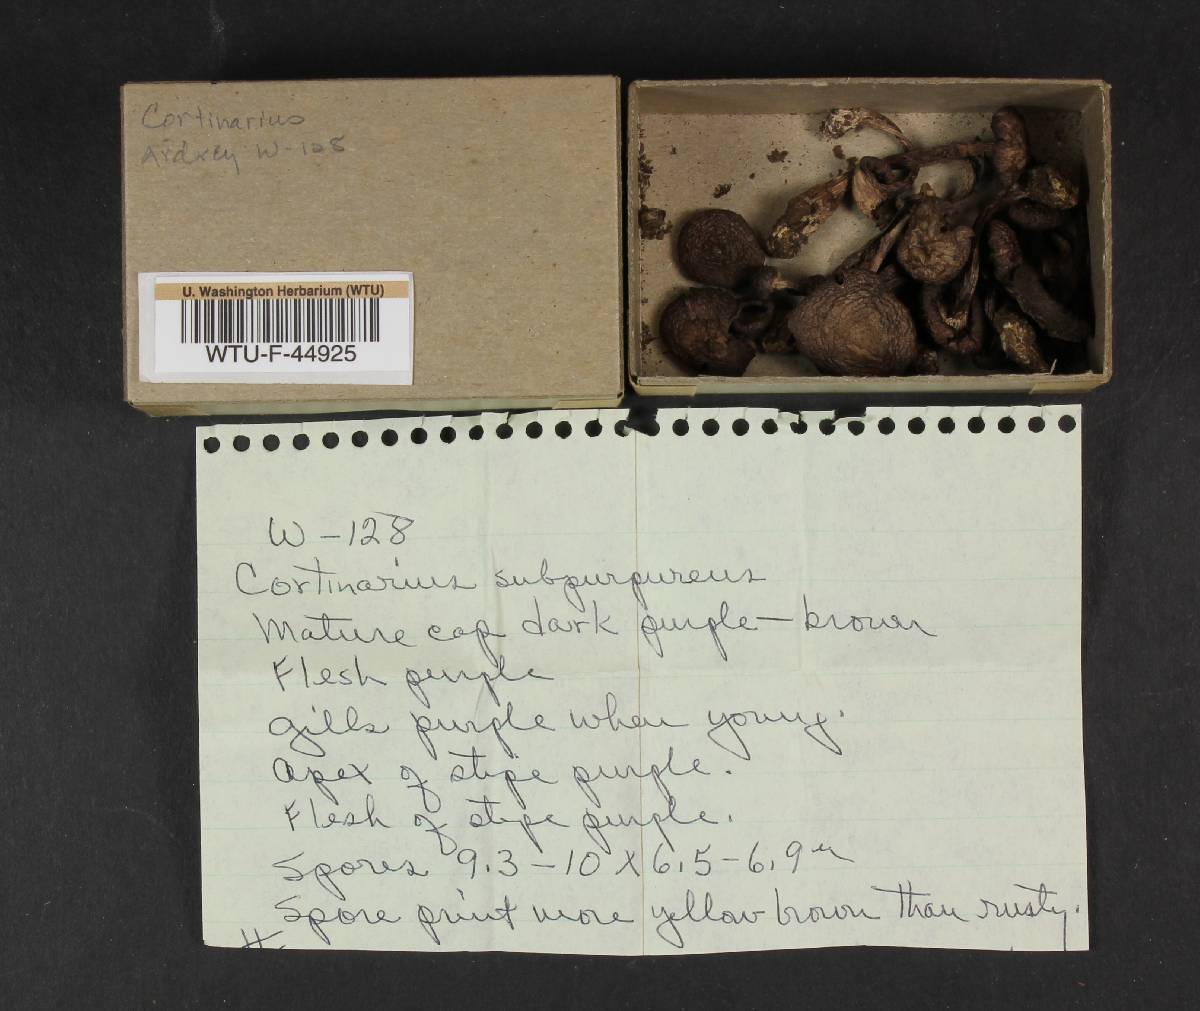 Cortinarius
Ardrey W-128
U. Washington Herbarium (WTU)
WTU-F-44925
W-128
Cortinarius subpurpureus
Mature cap dark purple-brown
Flesh purple
Gills purple when young.
Apex of stipe purple.
Flesh of stipe purple.
Spores 9.3-10 X 6.5-6.9 u
Spore print more yellow brown than rusty.